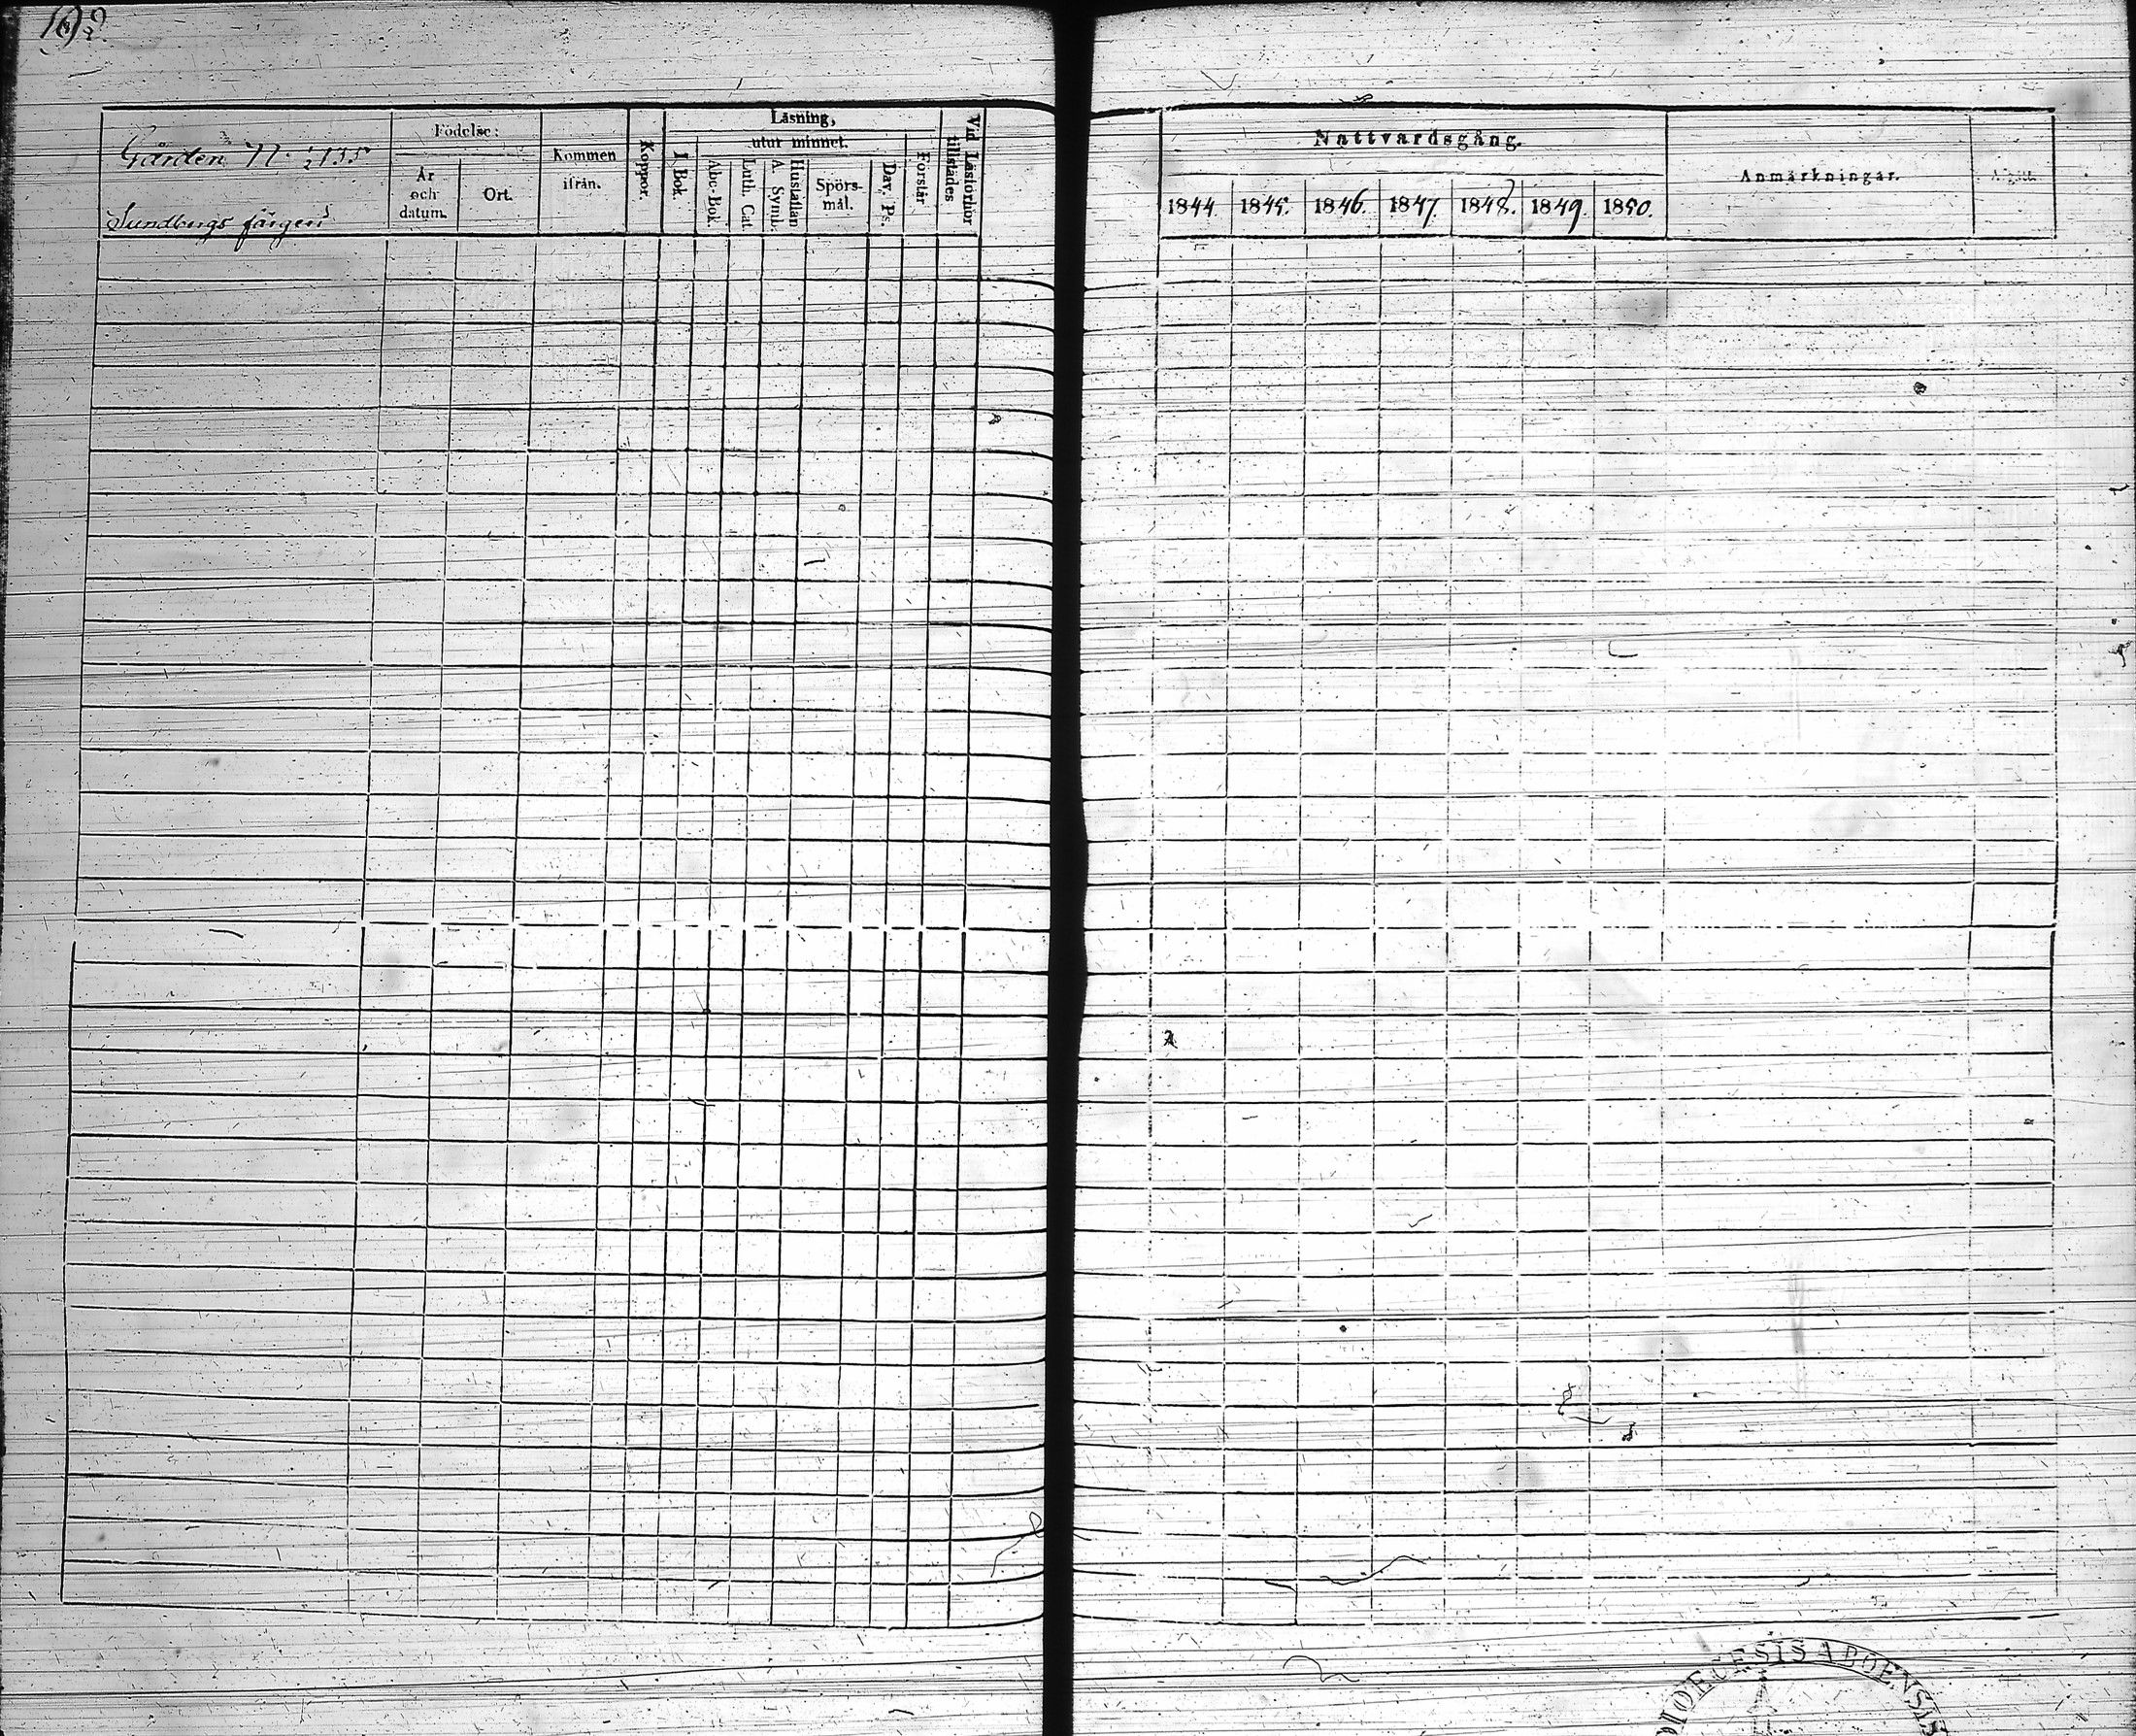 Gården N. ½ 135
Sundbergs färgeri
Födelse:
År och datum.
Ort.
Kommen ifrån.
Koppor.
Läsning,
utur minnet.
I Bok.
Abc-Bok.
Luth. Cat.
Hustaflan
A. Symb.
Spörs-mål.
Dav. Ps.
Förstår
Vid Läsförhör
tillstädes
Nattvardsgång.
1844. 1845. 1846. 1847. 1848. 1849. 1850.
Anmärkningar.
DIOECESIS ABOENSIS